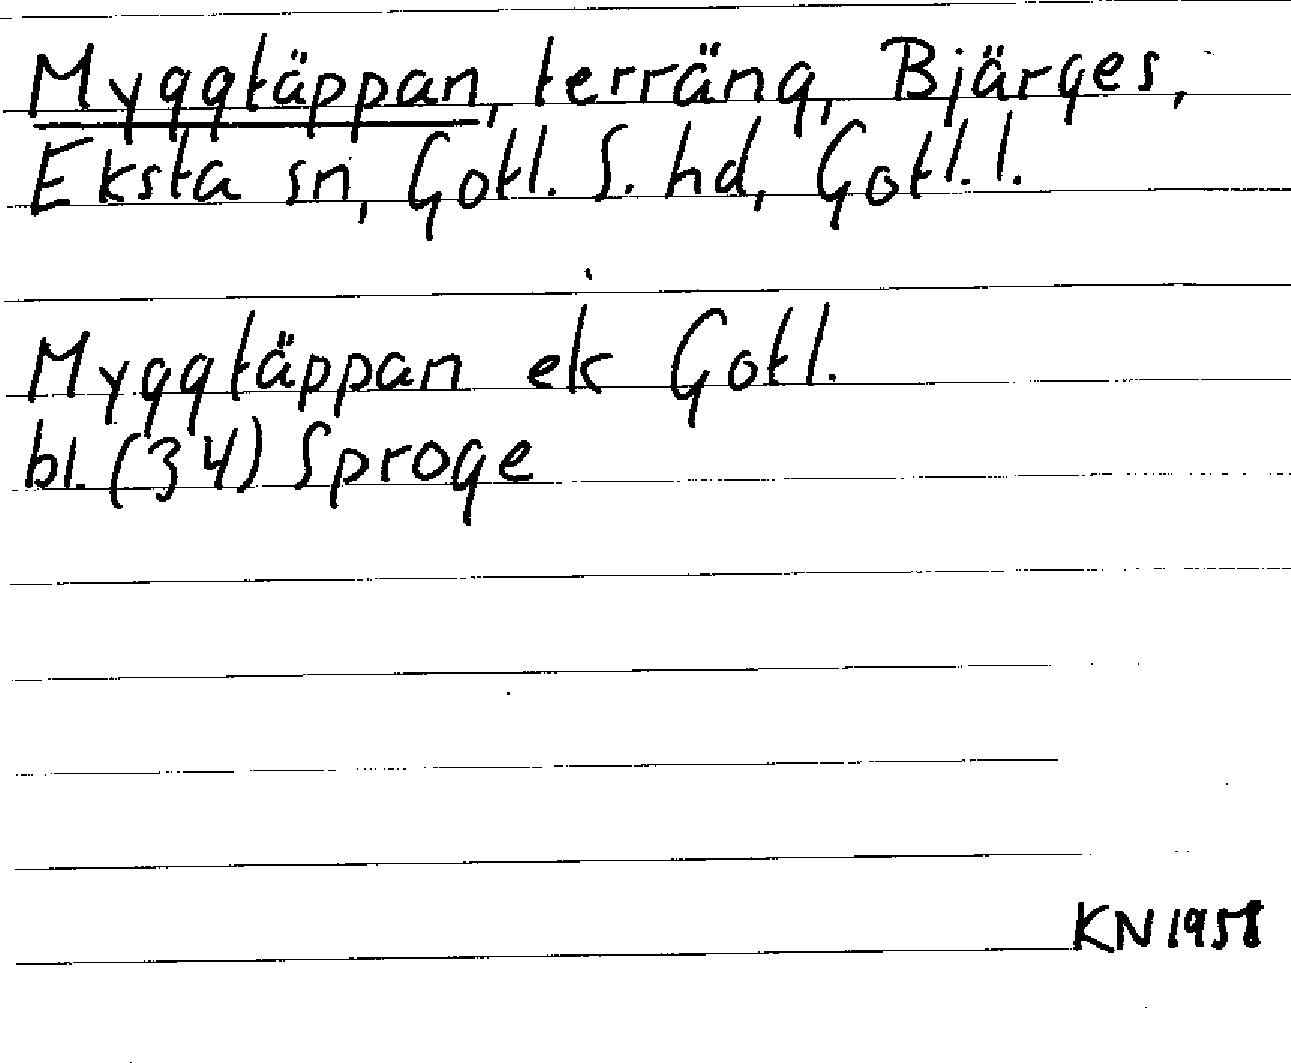 Myggtäppan, terräng, Bjärges,
Eksta sn, Gotl. S. hd, Gotl. l.
Myggtäppan ek Gotl.
bl. (34) Sproge
KN 1958